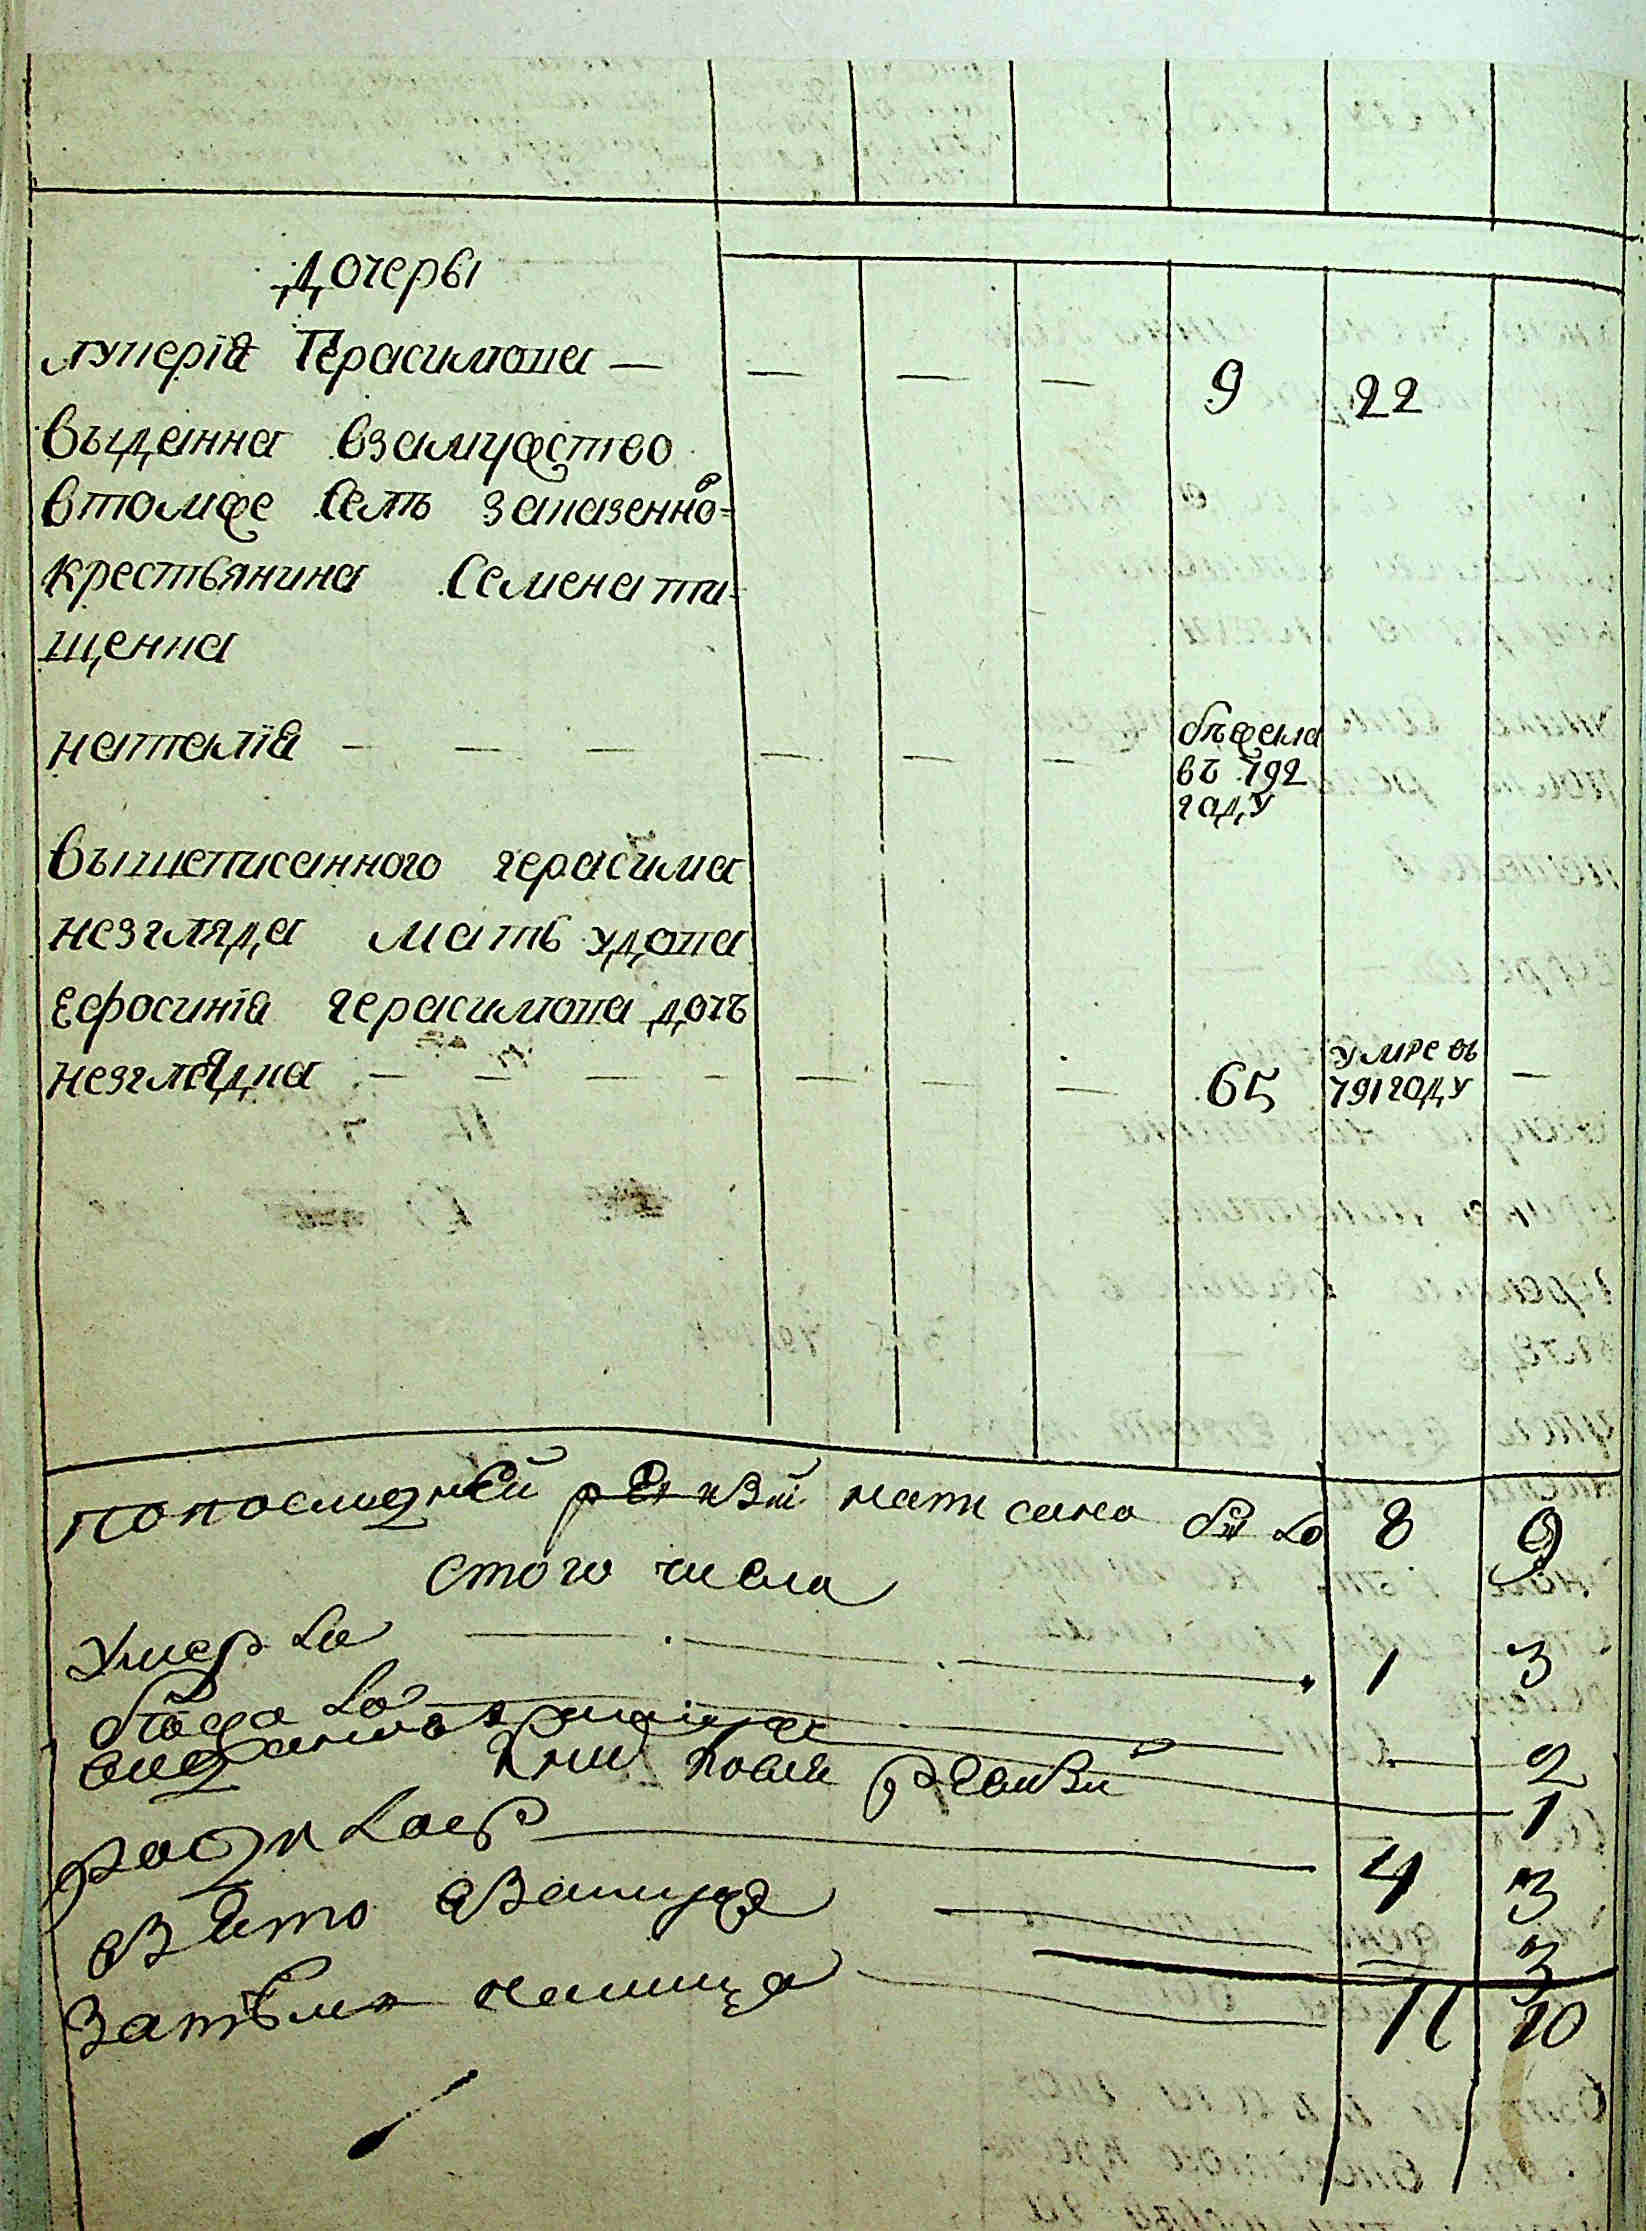 дочери
лукерія Герасимова — — — — 9 22
выданна взамужство
втомже селѣ заказенно=
го
крестьянина Семена ти-
щенка
наталія — — — — — — бѣжала
въ 792
году
вышеписанного герасима
незгляда мать удова
ефросинія герасимова дочь
незглядка — — — — — — — 65 умре въ —
791 году
попоследней ревизіи написано было 8 9
стого числа
Умерло 1 3
бѣжало 2
выдано взамуже 1
Кныншей ревизіи
родилось 4 3
Взято взамуже — 3
Затѣмъ налицо 11 10